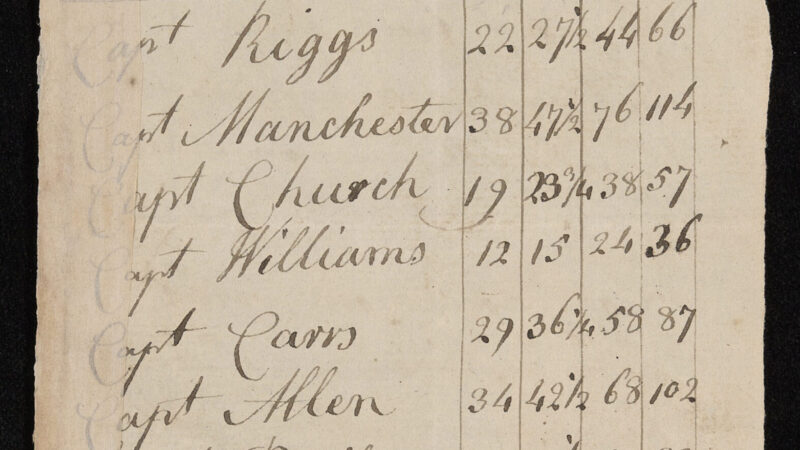 Capt Riggs 22 27½ 44 66
Capt Manchester 38 47½ 76 114
Capt Church 19 23¾ 38 57
Capt Williams 12 15 24 36
Capt Carrs 29 36¼ 58 87
Capt Allen 34 42½ 68 102